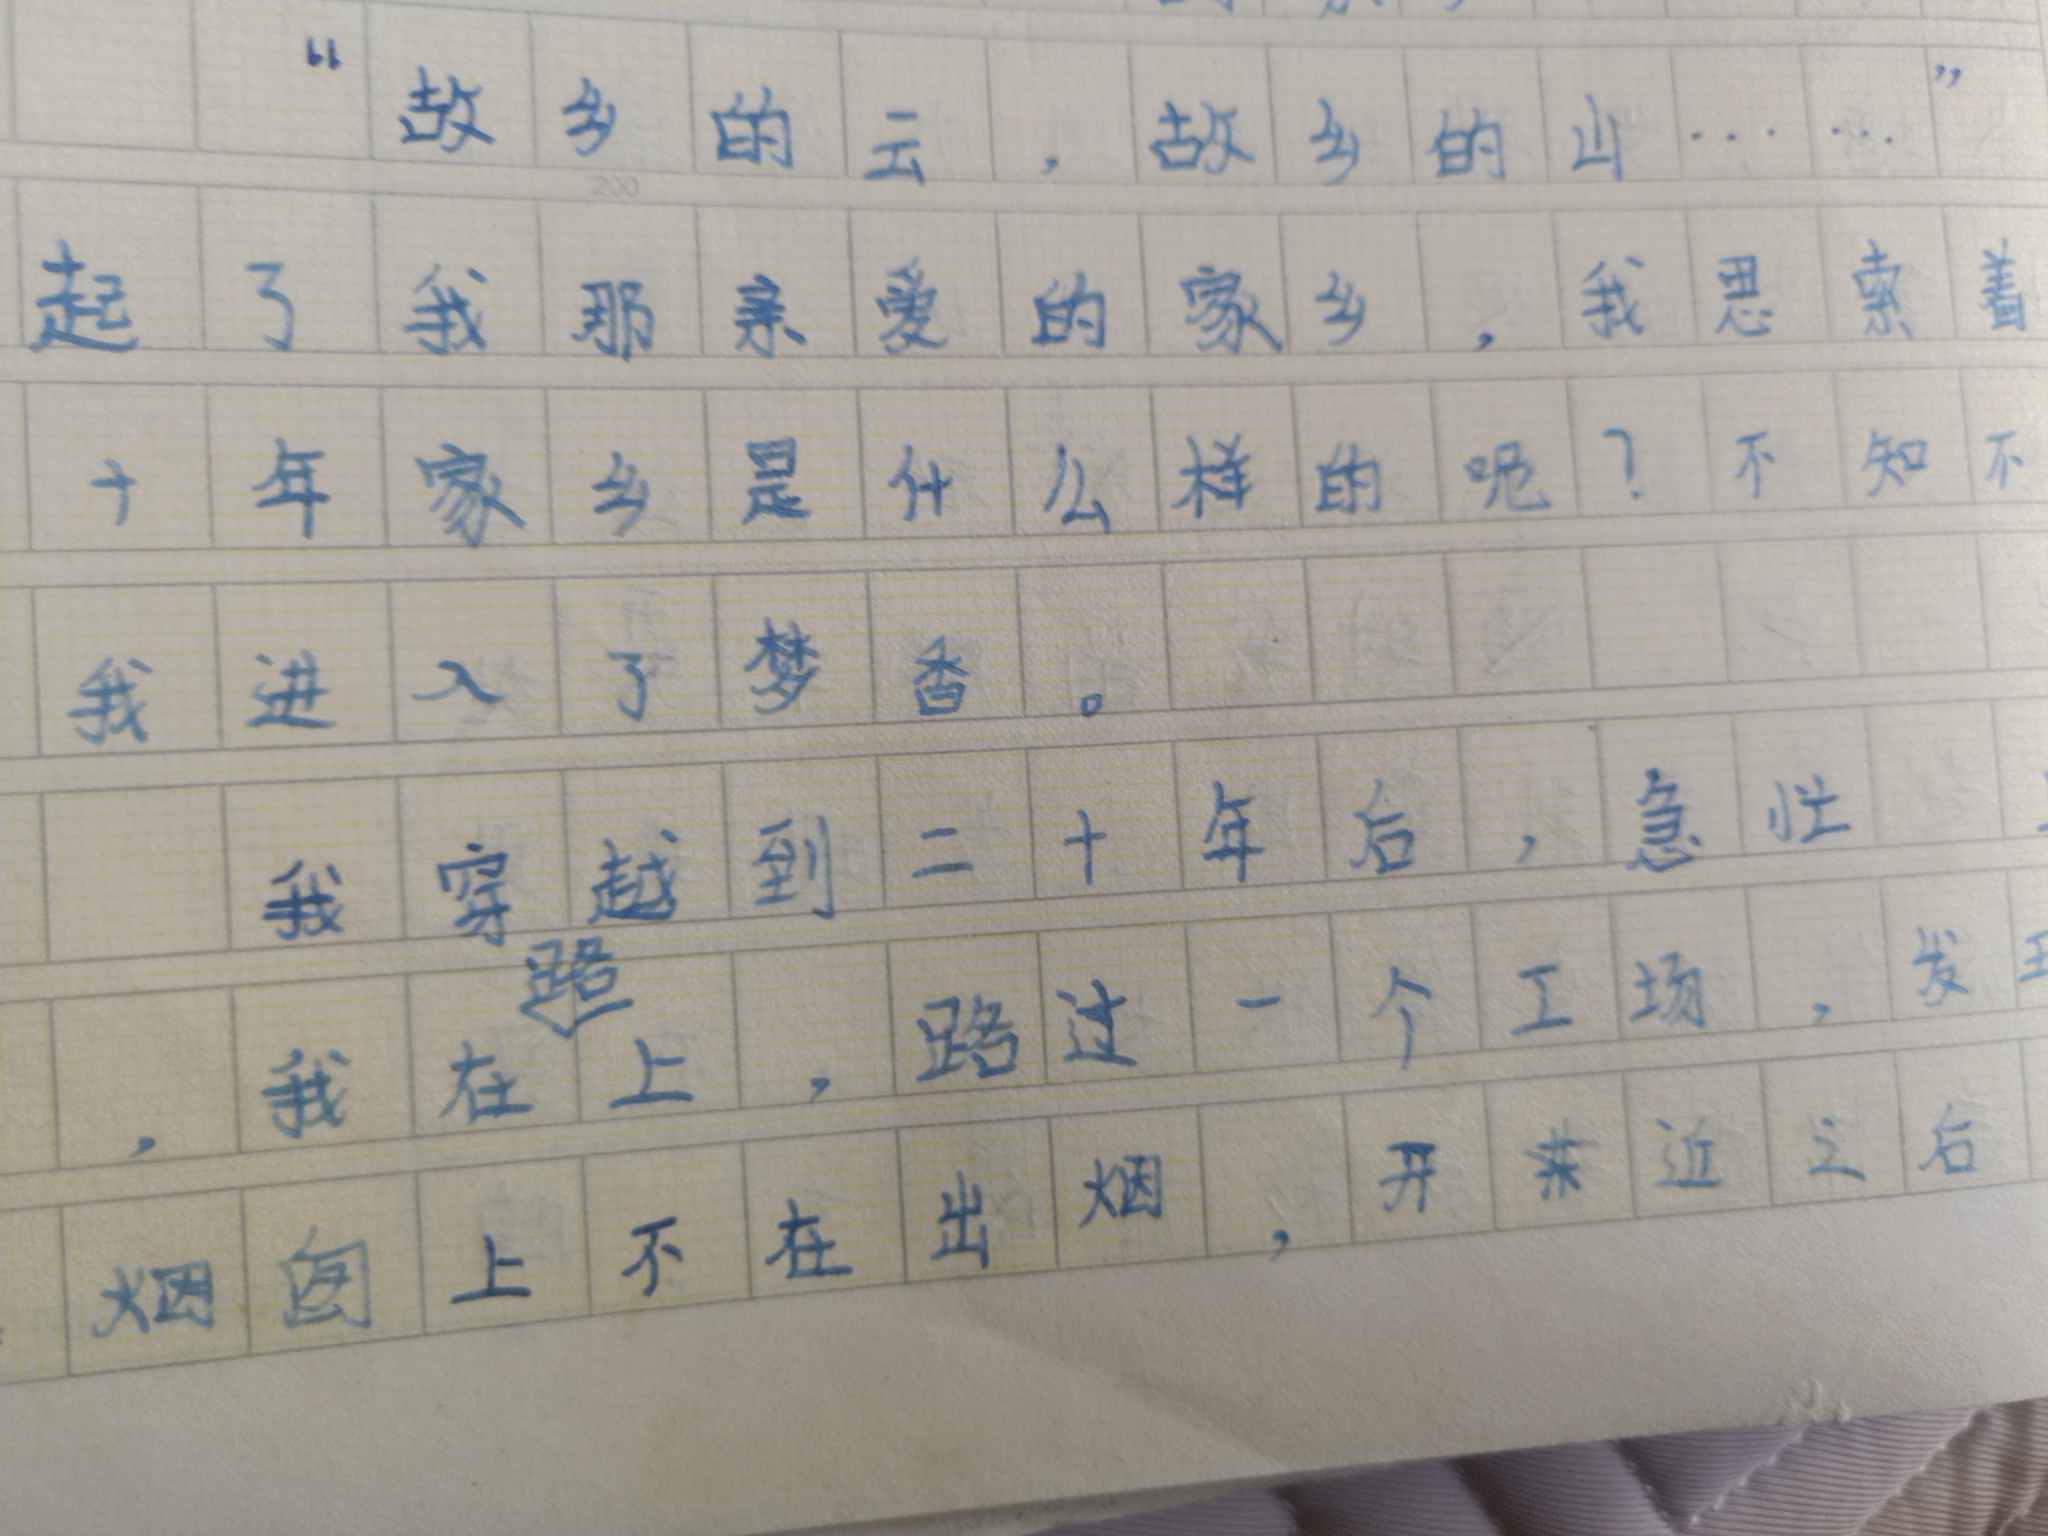 “故乡的云，故乡的山……”
200
起了我那亲爱的家乡，我思索着
十年家乡是什么样的呢？不知不
我进入了梦香。
我穿越到二十年后，急忙
，我在路上，路过一个工场，发
烟囱上不在出烟，开来近之后